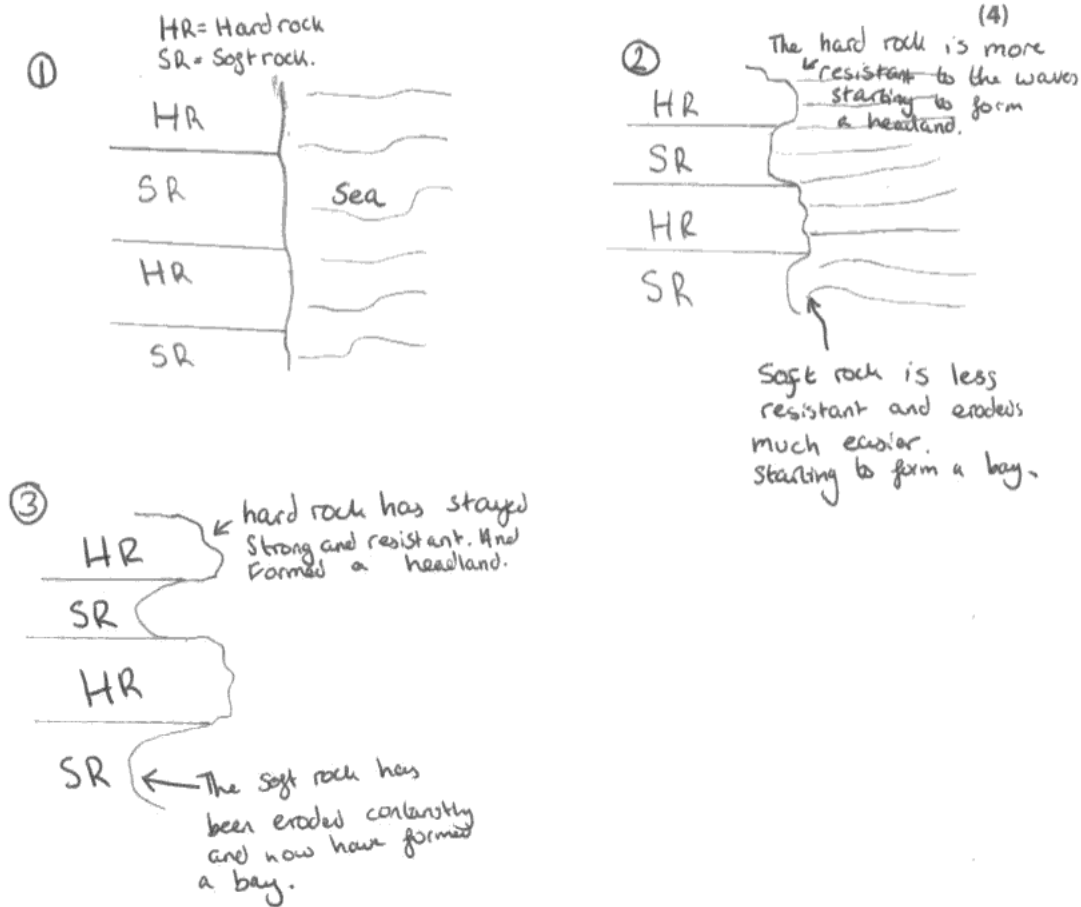 (4)
HR = Hard rock
SR = Soft rock.
①
HR
SR
HR
SR
Sea
②
The hard rock is more
resistant to the waves
starting to form
a headland.
HR
SR
HR
SR
Soft rock is less
resistant and erodes
much easier.
Starting to form a bay.
③
hard rock has stayed
Strong and resistant. And
Formed a headland.
HR
SR
HR
SR
The soft rock has
been eroded contanstly
and now have formed
a bay.